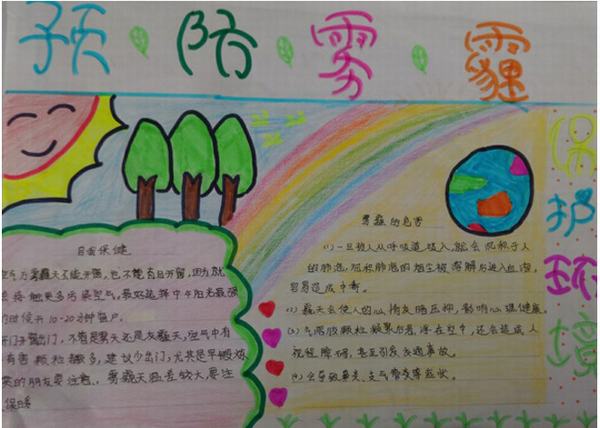 预防雾霾
保护环境
自我保健
雾霾天不能开窗,也不能盲目开窗,因为就
触更多污染空气,最好选择中午阳光最强
的时候开10-20分钟窗户。
出门,不管是雾天还是灰霾天,空气中有
有害颗粒都多,建议少出门,尤其是早晚
的朋友要注意、雾霾天温差较大,要注
保暖
雾霾的危害
(1)一旦被人从呼吸道吸入,就会沉积于人
的肺泡,沉积肺泡的烟尘被溶解后进入血液,
容易造成中毒。
霾天会使人的心情灰暗压抑,影响心理健康。
颗粒 浮在空中,还会造成人
视程障碍,甚至引发交通事故。
会导致鼻炎、支气管炎等症状。